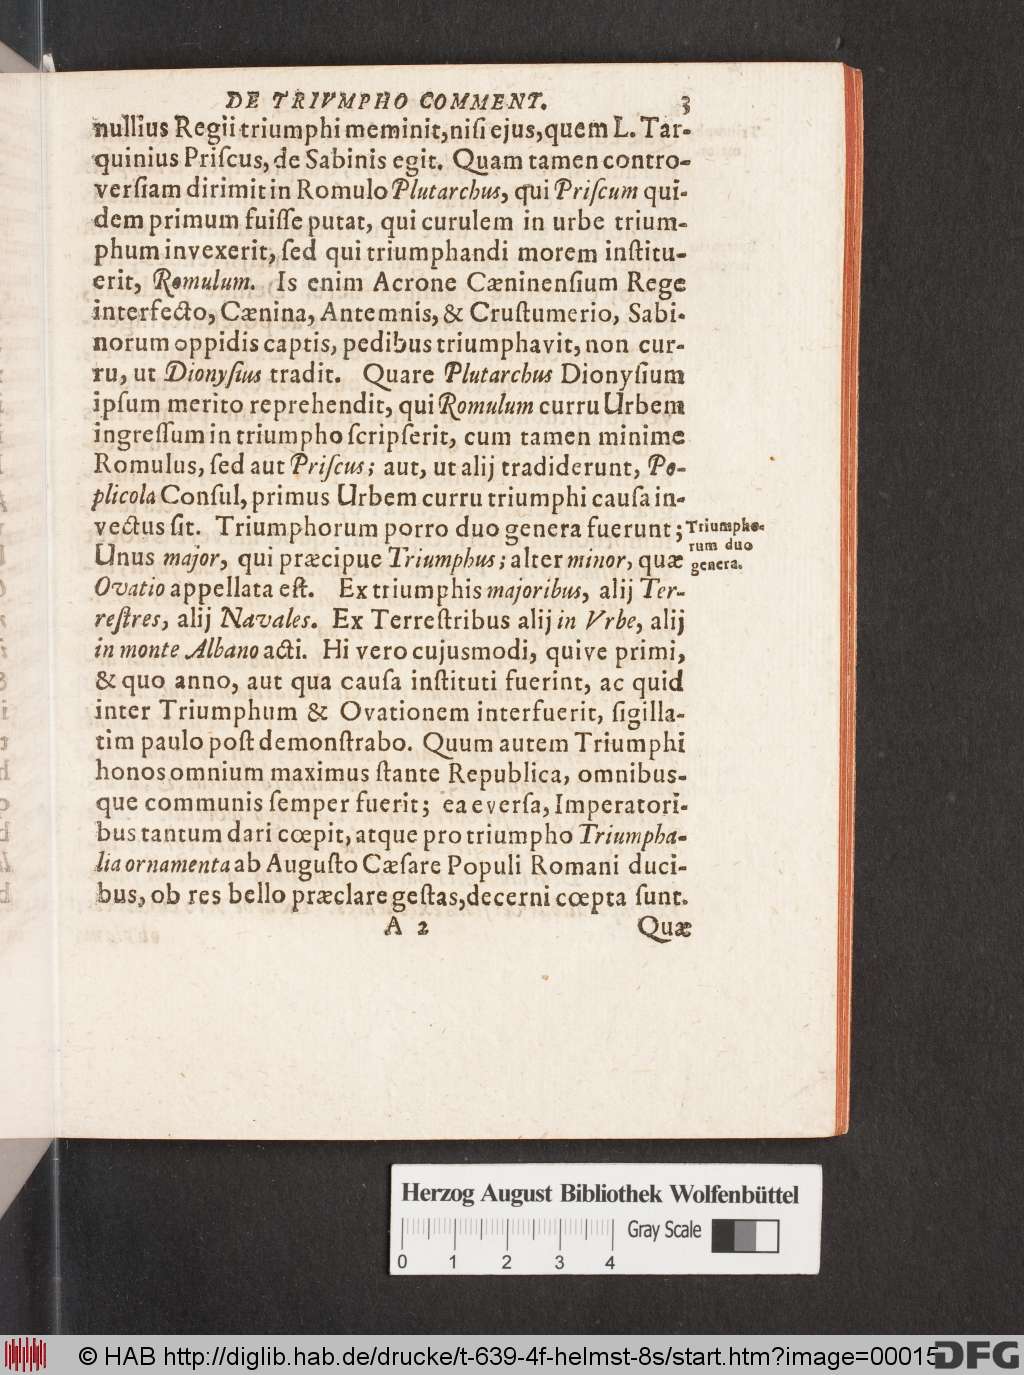 DE TRIVMPHO COMMENT. 3
nullius Regii triumphi meminit, niſi ejus, quem L. Tar-
quinius Priſcus, de Sabinis egit. Quam tamen contro-
verſiam dirimit in Romulo Plutarchus, qui Priſcum qui-
dem primum fuiſſe putat, qui curulem in urbe trium-
phum invexerit, ſed qui triumphandi morem inſtitu-
erit, Romulum. Is enim Acrone Cæninenſium Rege
interfecto, Cænina, Antemnis, & Cruſtumerio, Sabi-
norum oppidis captis, pedibus triumphavit, non cur-
ru, ut Dionyſius tradit. Quare Plutarchus Dionyſium
ipſum merito reprehendit, qui Romulum curru Urbem
ingreſſum in triumpho ſcripſerit, cum tamen minime
Romulus, ſed aut Priſcus; aut, ut alij tradiderunt, Po-
plicola Conſul, primus Urbem curru triumphi cauſa in-
vectus ſit. Triumphorum porro duo genera fuerunt;
Unus major, qui præcipue Triumphus; alter minor, quæ
Ovatio appellata eſt. Ex triumphis majoribus, alij Ter-
reſtres, alij Navales. Ex Terreſtribus alij in Vrbe, alij
in monte Albano acti. Hi vero cujusmodi, quive primi,
& quo anno, aut qua cauſa inſtituti fuerint, ac quid
inter Triumphum & Ovationem interfuerit, ſigilla-
tim paulo poſt demonſtrabo. Quum autem Triumphi
honos omnium maximus ſtante Republica, omnibus-
que communis ſemper fuerit; ea everſa, Imperatori-
bus tantum dari cœpit, atque pro triumpho Triumpha-
lia ornamenta ab Auguſto Cæſare Populi Romani duci-
bus, ob res bello præclare geſtas, decerni cœpta ſunt.
A 2 Quæ
Triumpho-
rum duo
genera.
Herzog August Bibliothek Wolfenbüttel
Gray Scale
0 1 2 3 4
© HAB http://diglib.hab.de/drucke/t-639-4f-helmst-8s/start.htm?image=00015
DFG